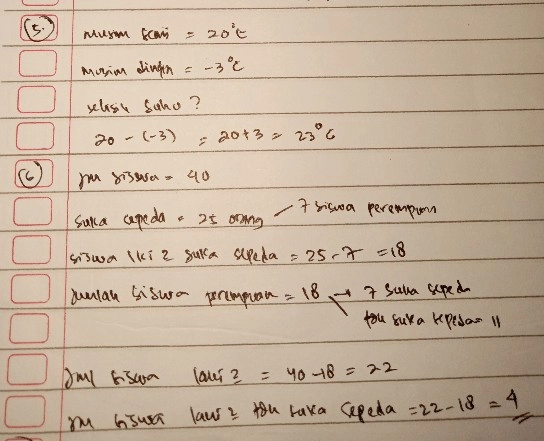 5. Musim semi = 20°C
Musim dingin = -3°C
selisih suhu?
20 - (-3) = 20+3 = 23°C
6 Jml siswa = 40
Suka sepeda = 25 orang 7 siswa perempuan
siswa lki2 suka sepeda = 25 - 7 = 18
Jumlah siswa perempuan = 18 → 7 suka sepeda
tdk suka sepeda = 11
Jml siswa laki2 = 40 - 18 = 22
Jml siswa laki2 tdk suka sepeda = 22 - 18 = 4